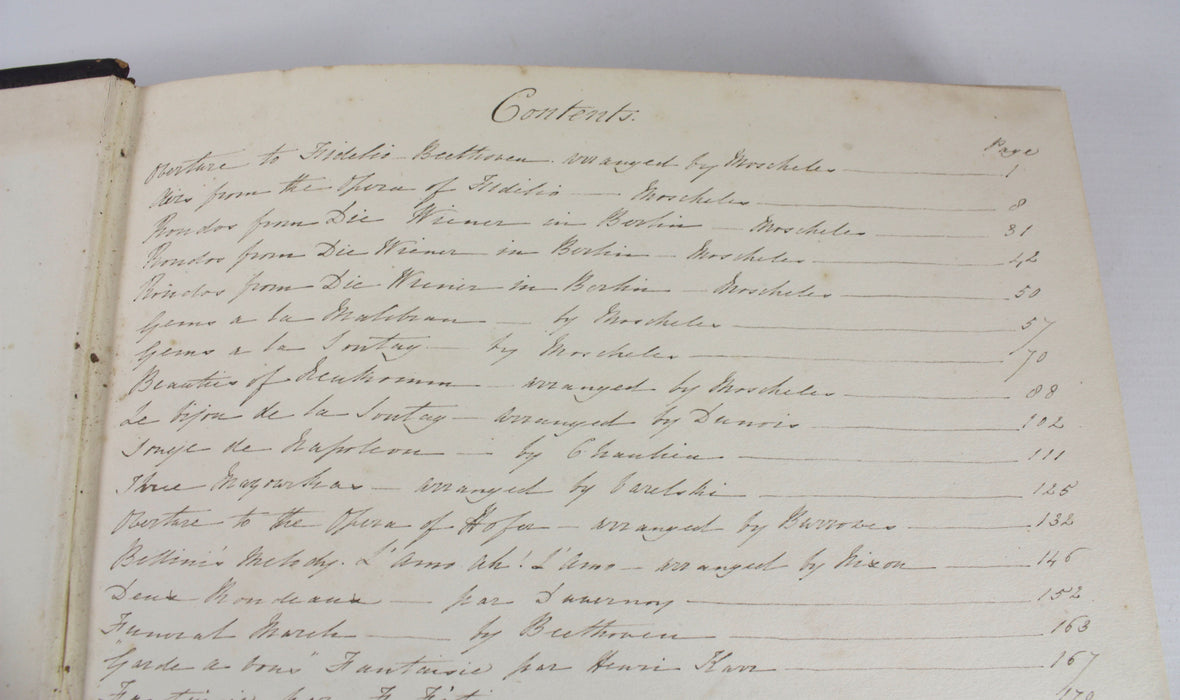 Contents.
Page
Overture to Fidelio - Beethoven. arranged by Moscheles 1
Airs from the Opera of Fidelio — Moscheles 8
Rondos from Die Wiener in Berlin — Moscheles 31
Rondos from Die Wiener in Berlin — Moscheles 42
Rondos from Die Wiener in Berlin — Moscheles 50
Gems a la Malibran — by Moscheles 57
Gems a la Sontag — by Moscheles 70
Beauties of Neukomm — arranged by Moscheles 88
Le bijou de la Sontag — arranged by Dunois 102
Songe de Napoleon — by Chaulieu 111
Three Mazourkas — arranged by 125
Overture to the Opera of Hofer — arranged by Burrowes 132
Bellini's Melody. L'Amo ah! L'Amo — arranged by Nixon 146
Deux Rondeaux — par Duvernoy 152
Funeral March — by Beethoven 163
"Garde a vous" Fantaisie par Henri Karr 167
Fantaisie par F. 179